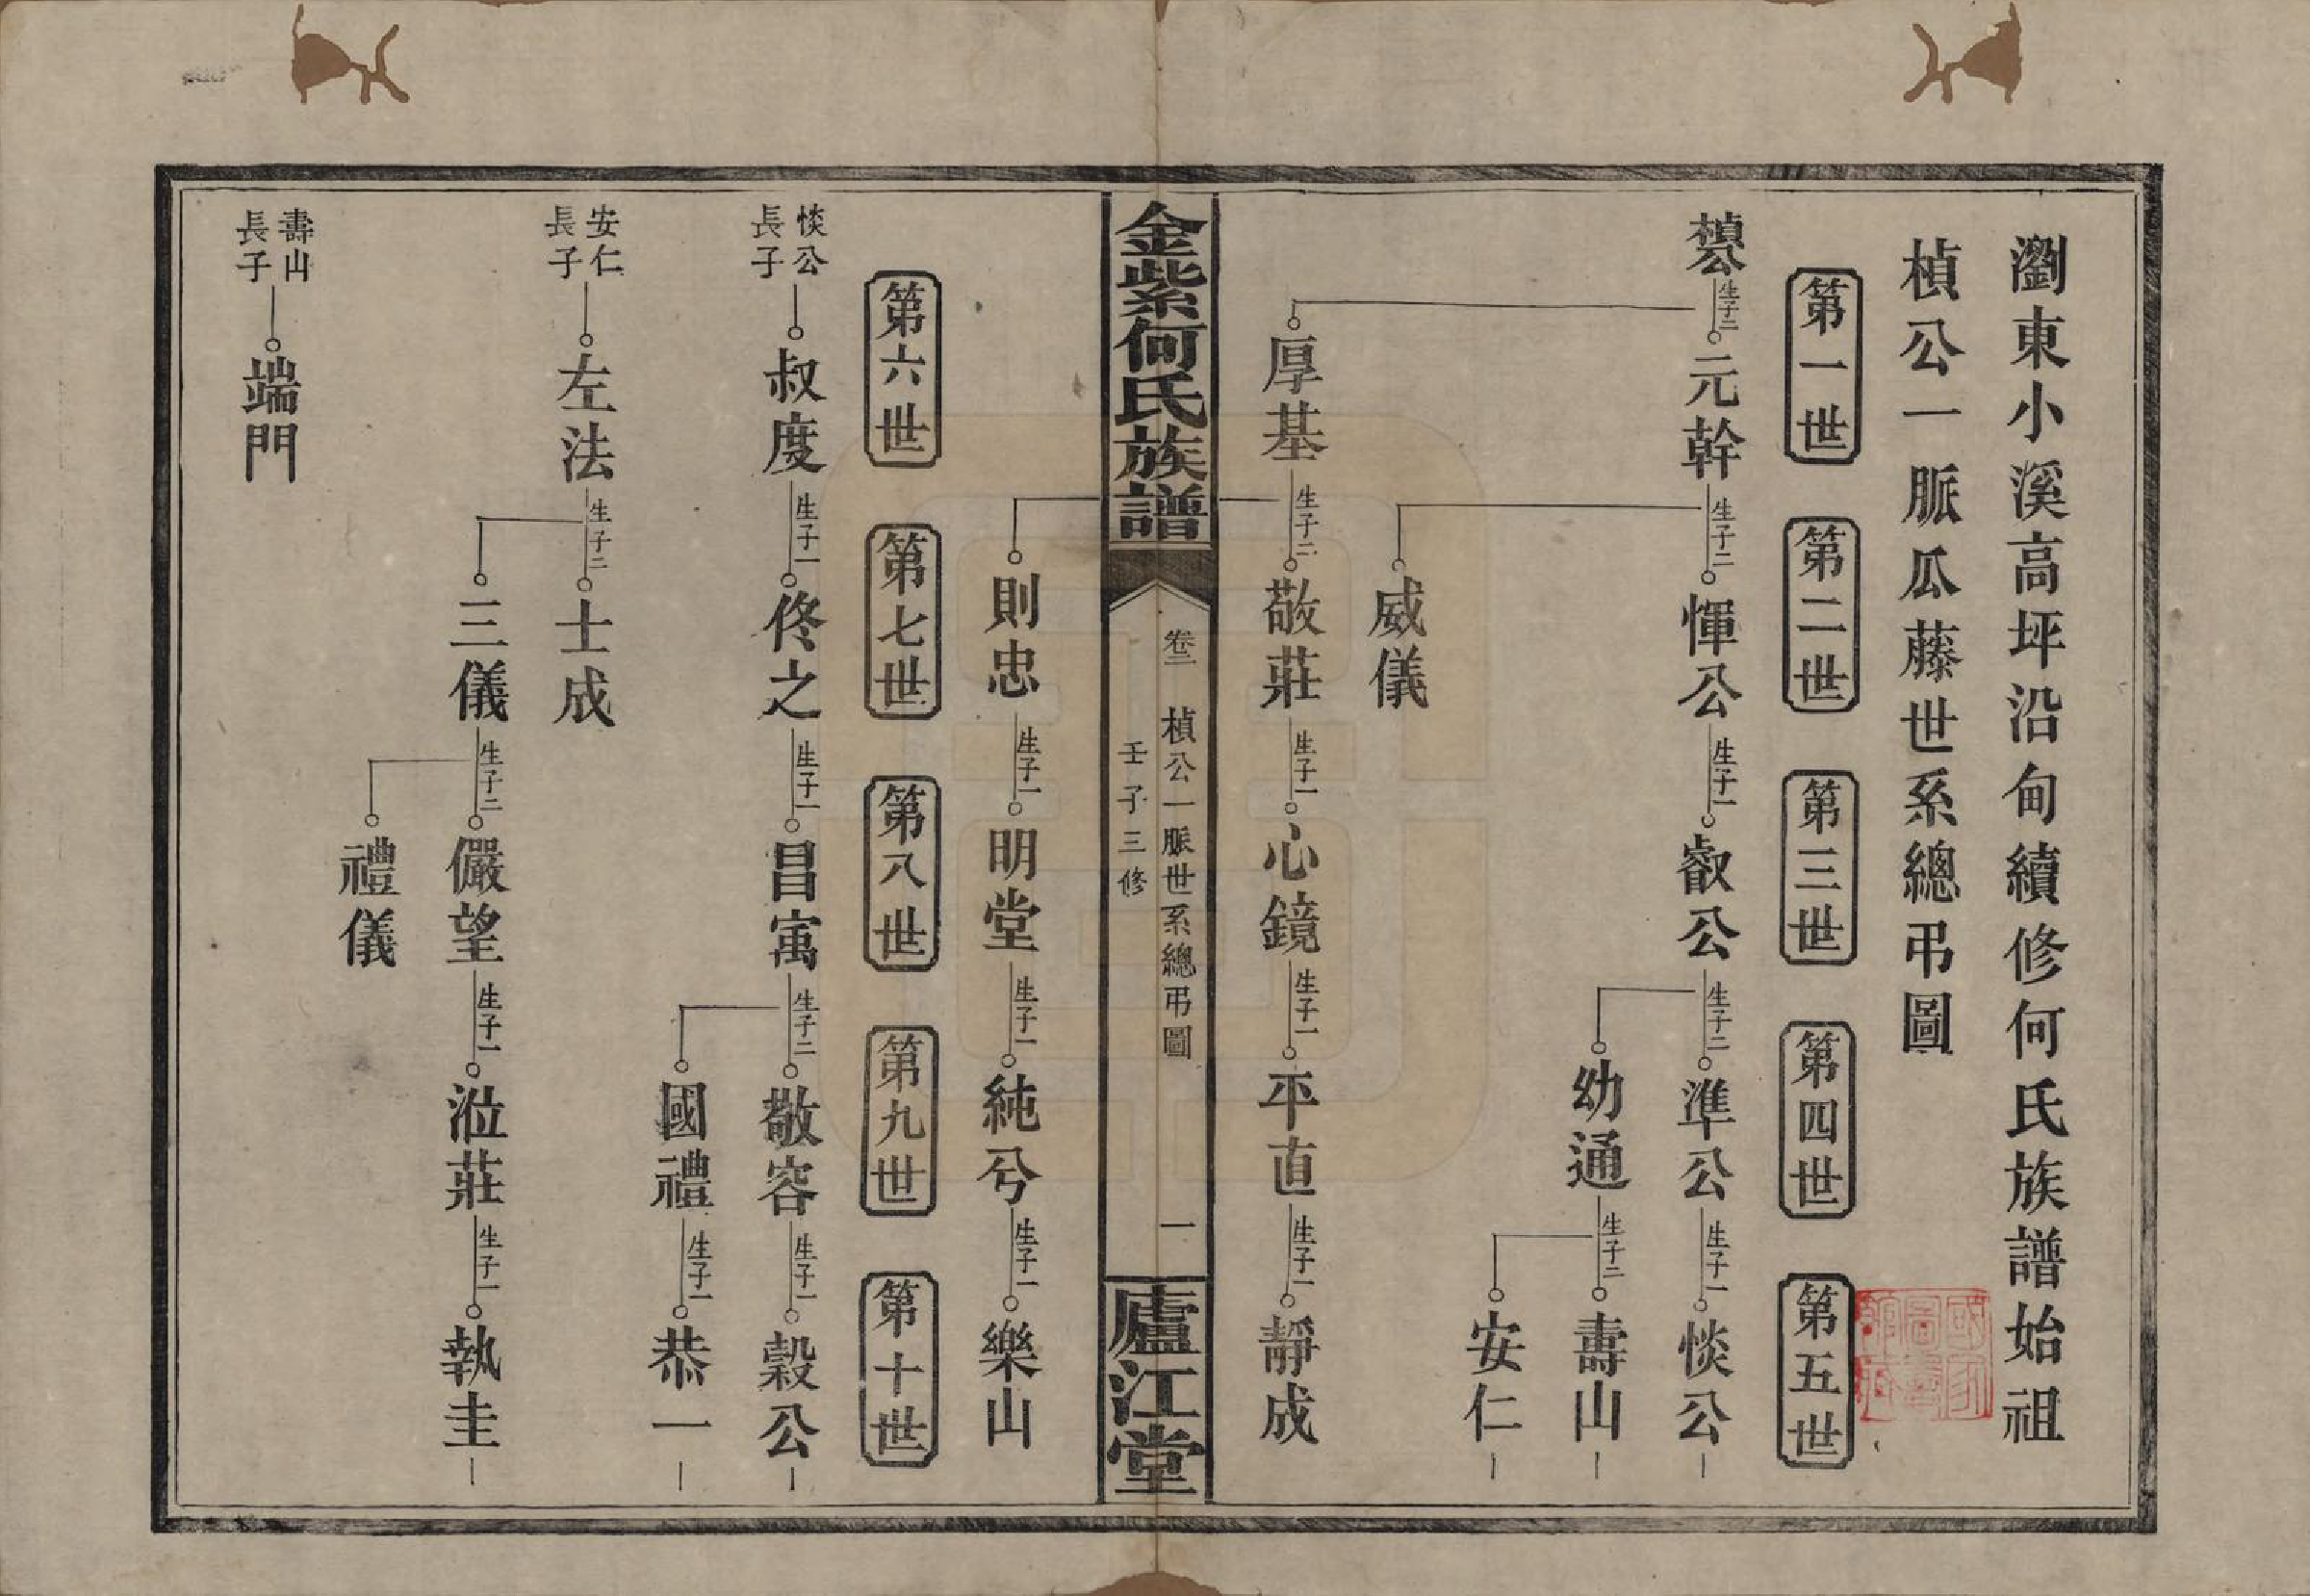 瀏東小溪高坪沿甸續修何氏族譜始祖
楨公一脈瓜藤世系總弔圖
第一世
第二世
第三世
第四世
第五世
楨公
生子二
元幹
生子二
惲公
生子一
叡公
生子二
準公
生子一
惔公
幼通
生子二
壽山
安仁
威儀
厚基
生子二
敬莊
生子一
心鏡
生子一
平直
生子一
靜成
金紫何氏族譜
卷二
楨公一脈世系總弔圖
壬子三修
一
廬江堂
則忠
生子一
明堂
生子一
純兮
生子一
樂山
第六世
第七世
第八世
第九世
第十世
惔公
長子
叔度
生子一
佟之
生子一
昌寓
生子二
敬容
生子一
穀公
國禮
生子一
恭一
安仁
長子
左法
生子二
士成
三儀
生子二
儼望
生子一
涖莊
生子一
執圭
禮儀
壽山
長子
端門